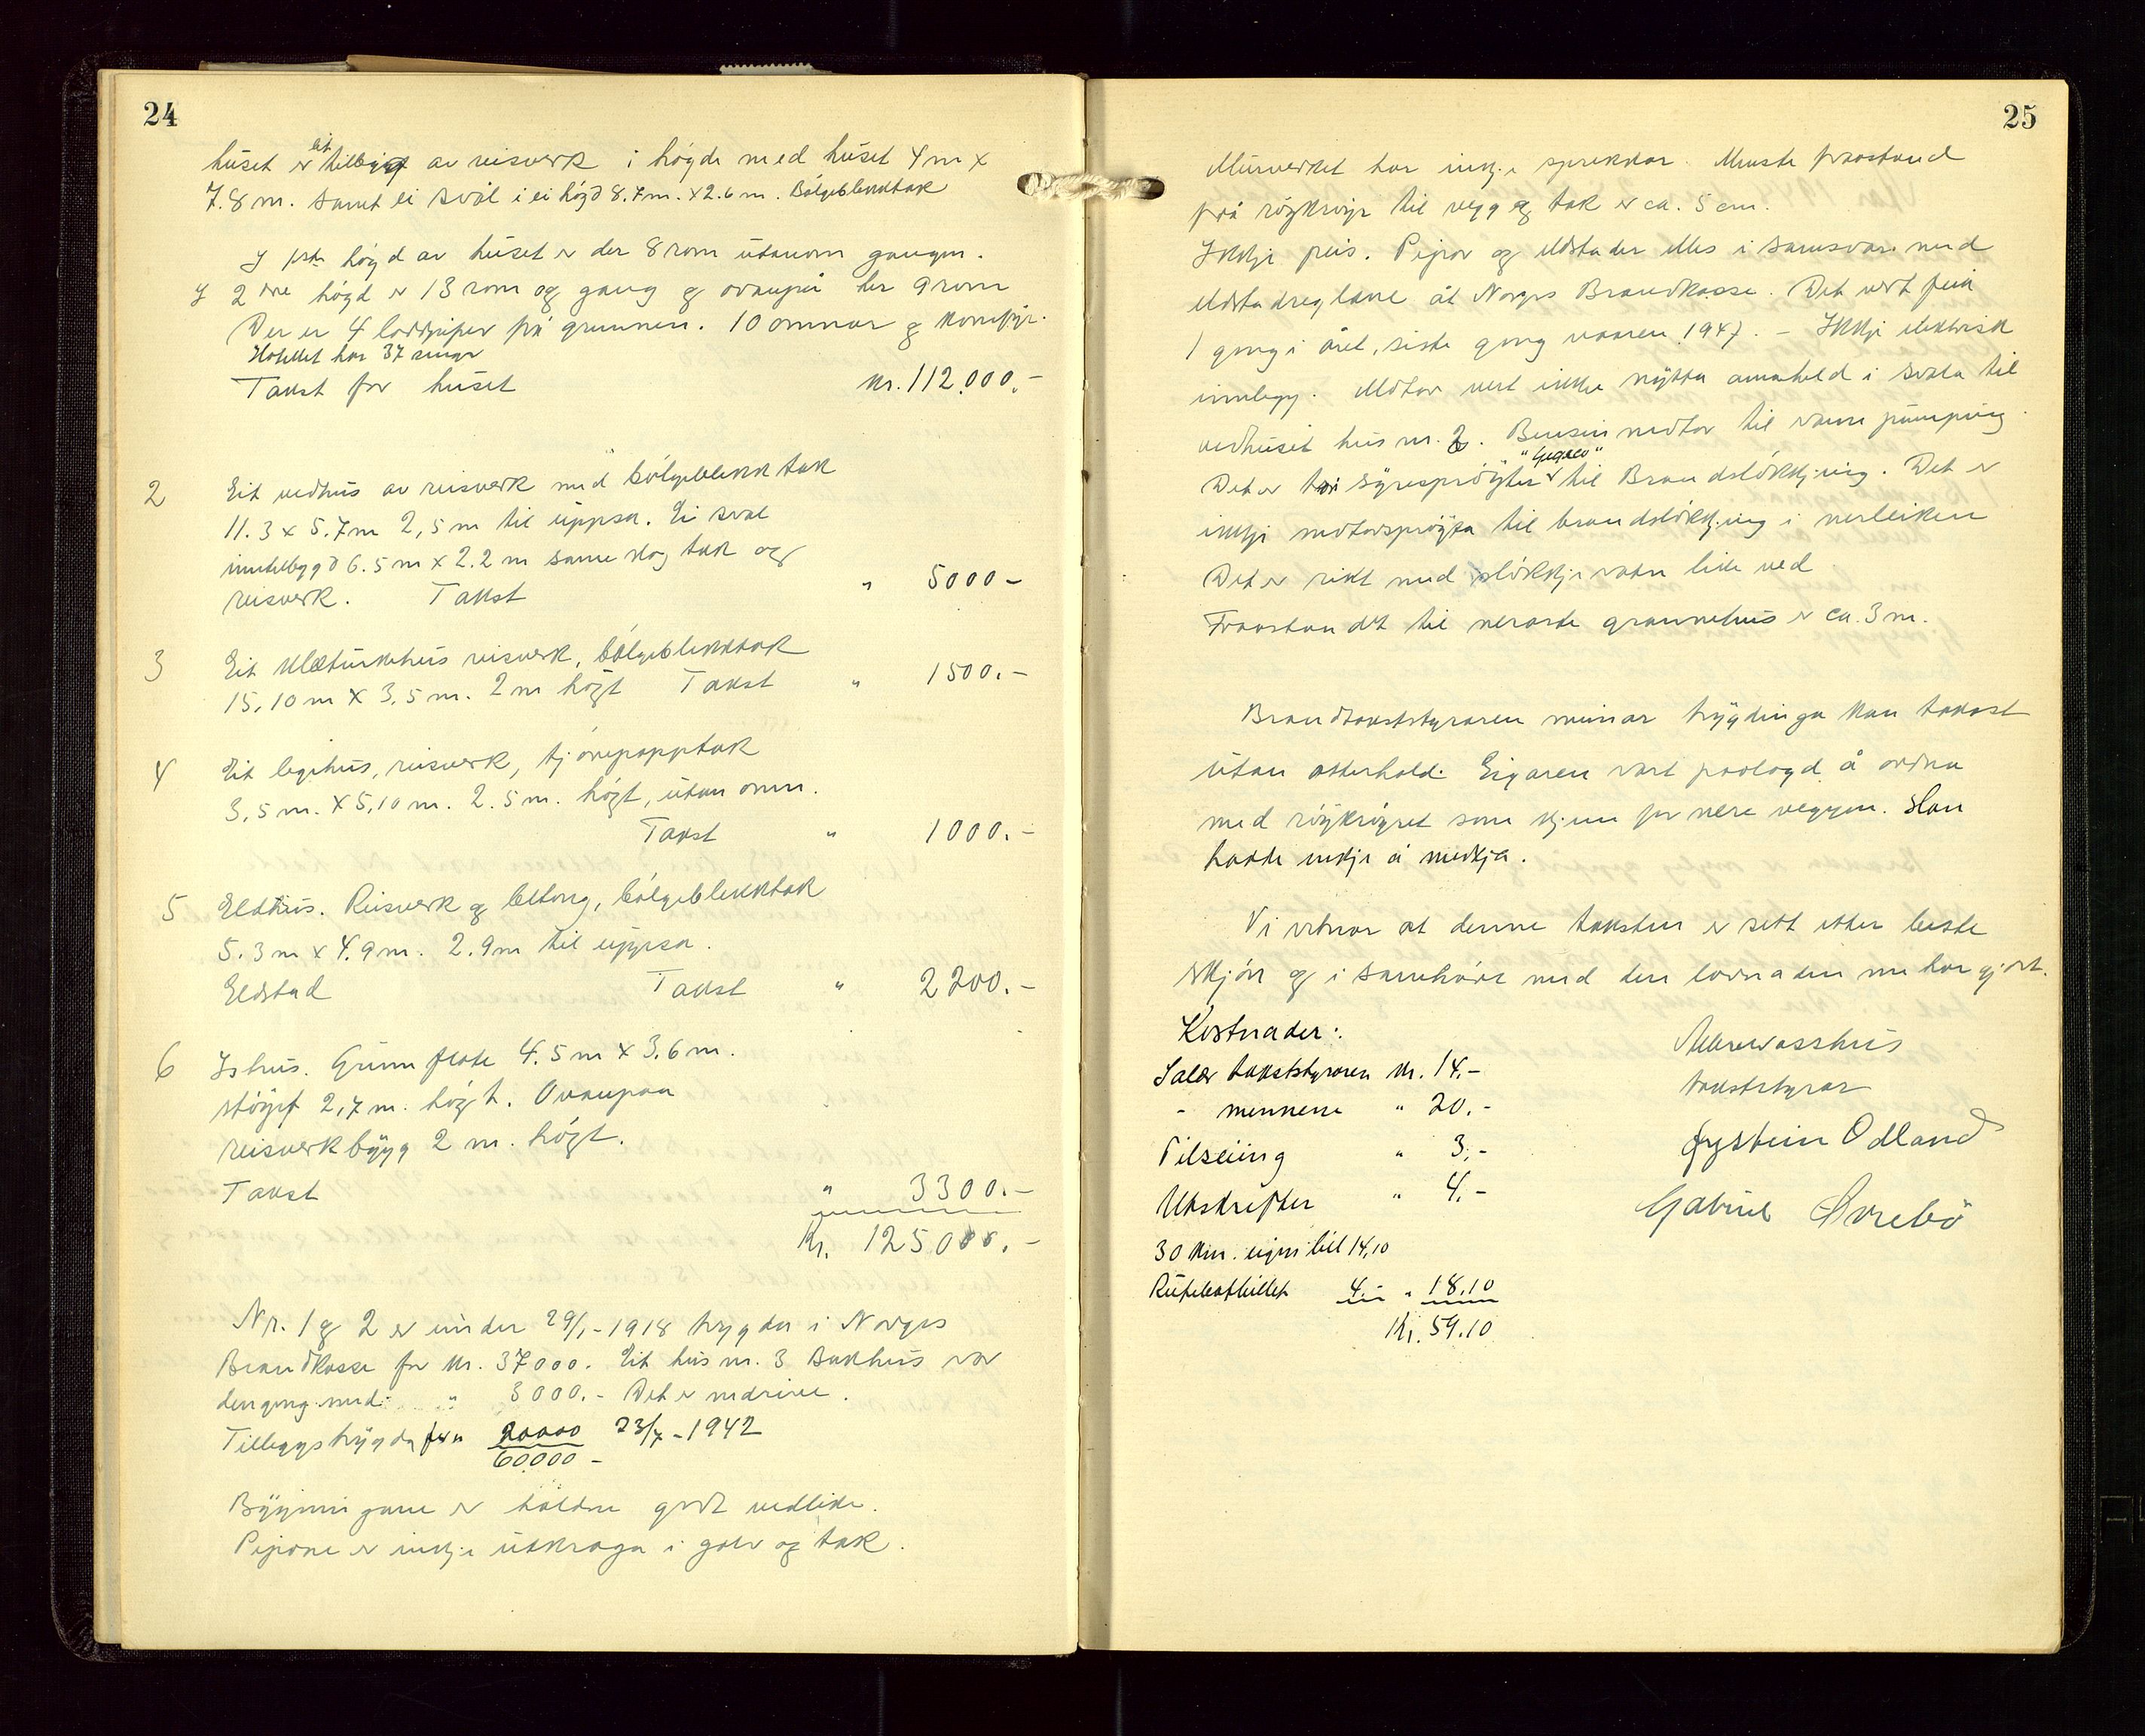 24
huset er eit tilbygg av reisverk i høgde med huset 4 m x
7.8 m. samt ei sval i ei høgd 8.7 m. x 2.6 m. Bølgeblekktak
I fyrste høgd av huset er der 8 rom utanom gangen.
I 2dre høgd er 13 rom og gang og ovanpå her 9 rom
Der er 4 loddpiper frå grunnen. 10 omnar og komfyr.
Hotellet har 37 senger
Takst for huset kr. 112.000.-
2 Eit vedhus av reisverk med bølgeblekktak
11.3 x 5.7 m 2,5 m til uppsa. Ei sval
inntilbygd 6.5 m x 2.2 m same slag tak og
reisverk. Takst " 5000-
3 Eit klæturkehus reisverk, bølgeblekktak
15,10 m x 3,5 m. 2 m høgt Takst " 1500.-
4 Eit legehus, reisverk, tjørepapptak
3,5 m. x 5,10 m. 2.5 m. høgt, utan omn.
Takst " 1000.-
5 Eldhus. Reisverk og betong, bølgeblekktak
5.3 m x 4.9 m. 2.9 m til uppsa.
Eldstad Takst " 2200.-
6 Ishus. Grunnflate 4.5 m x 3.6 m.
støypt 2,7 m. høgt. Ovanpaa
reisverkbygg 2 m. høgt.
Takst " 3300.-
Kr. 125000.-
Nr. 1 og 2 er under 29/1-1918 trygda i Norges
Brandkasse for kr. 37000. Eit hus nr. 3 Bakhus var
dengong med " 3000.- Det er nedrive.
Tilleggstrygda for " 20000 23/7-1942
60000-
Bygningane er haldne godt vedlike.
Pipone er inkje utkraga i golv og tak.
25
Murverket har inkje sprekkar. Minste fraastand
frå røykrøyr til vegg og tak er ca. 5 cm.
Ikkje peis. Pipor og eldstader elles i samsvar med
eldstadreglane åt Norges Brandkasse. Det vert feia
1 gong i året, siste gong vaaren 1947. - Ikkje elektrisk
innlegg. Motor vert ikkje nytta annaheld i svala til
vedhuset hus nr. 2. Bensinmotor til vann pumping
Det er tri syresprøyter til Brandsløkkjing. Det er
inkje motorsprøyta til brandsløkkjing i nerleiken
Det er rikt med sløkkjevatn like ved
Fraastandet til neraste grannehus er ca. 3 m.
Brandtakststyraren meinar trygdinga kan takast
utan atterhald. Eigaren vart paalagd å ordna
med røykrøyret som kjem for nere veggen. Han
hadde inkje å merkja.
Vi vitnar at denne taksten er sett etter beste
skjøn og i samhøve med den lovnaden me har gjort.
Kostnader:
Salær takststyraren kr. 14.-
- mennene " 20.-
Tilseiing " 3.-
Utskrifter " 4.-
30 km. eigen bil 14,10
Rutebåtbillet 4.- " 18.10
Kr. 59.10
takststyrar
Øystein Odland
Gabriel Øvrebø